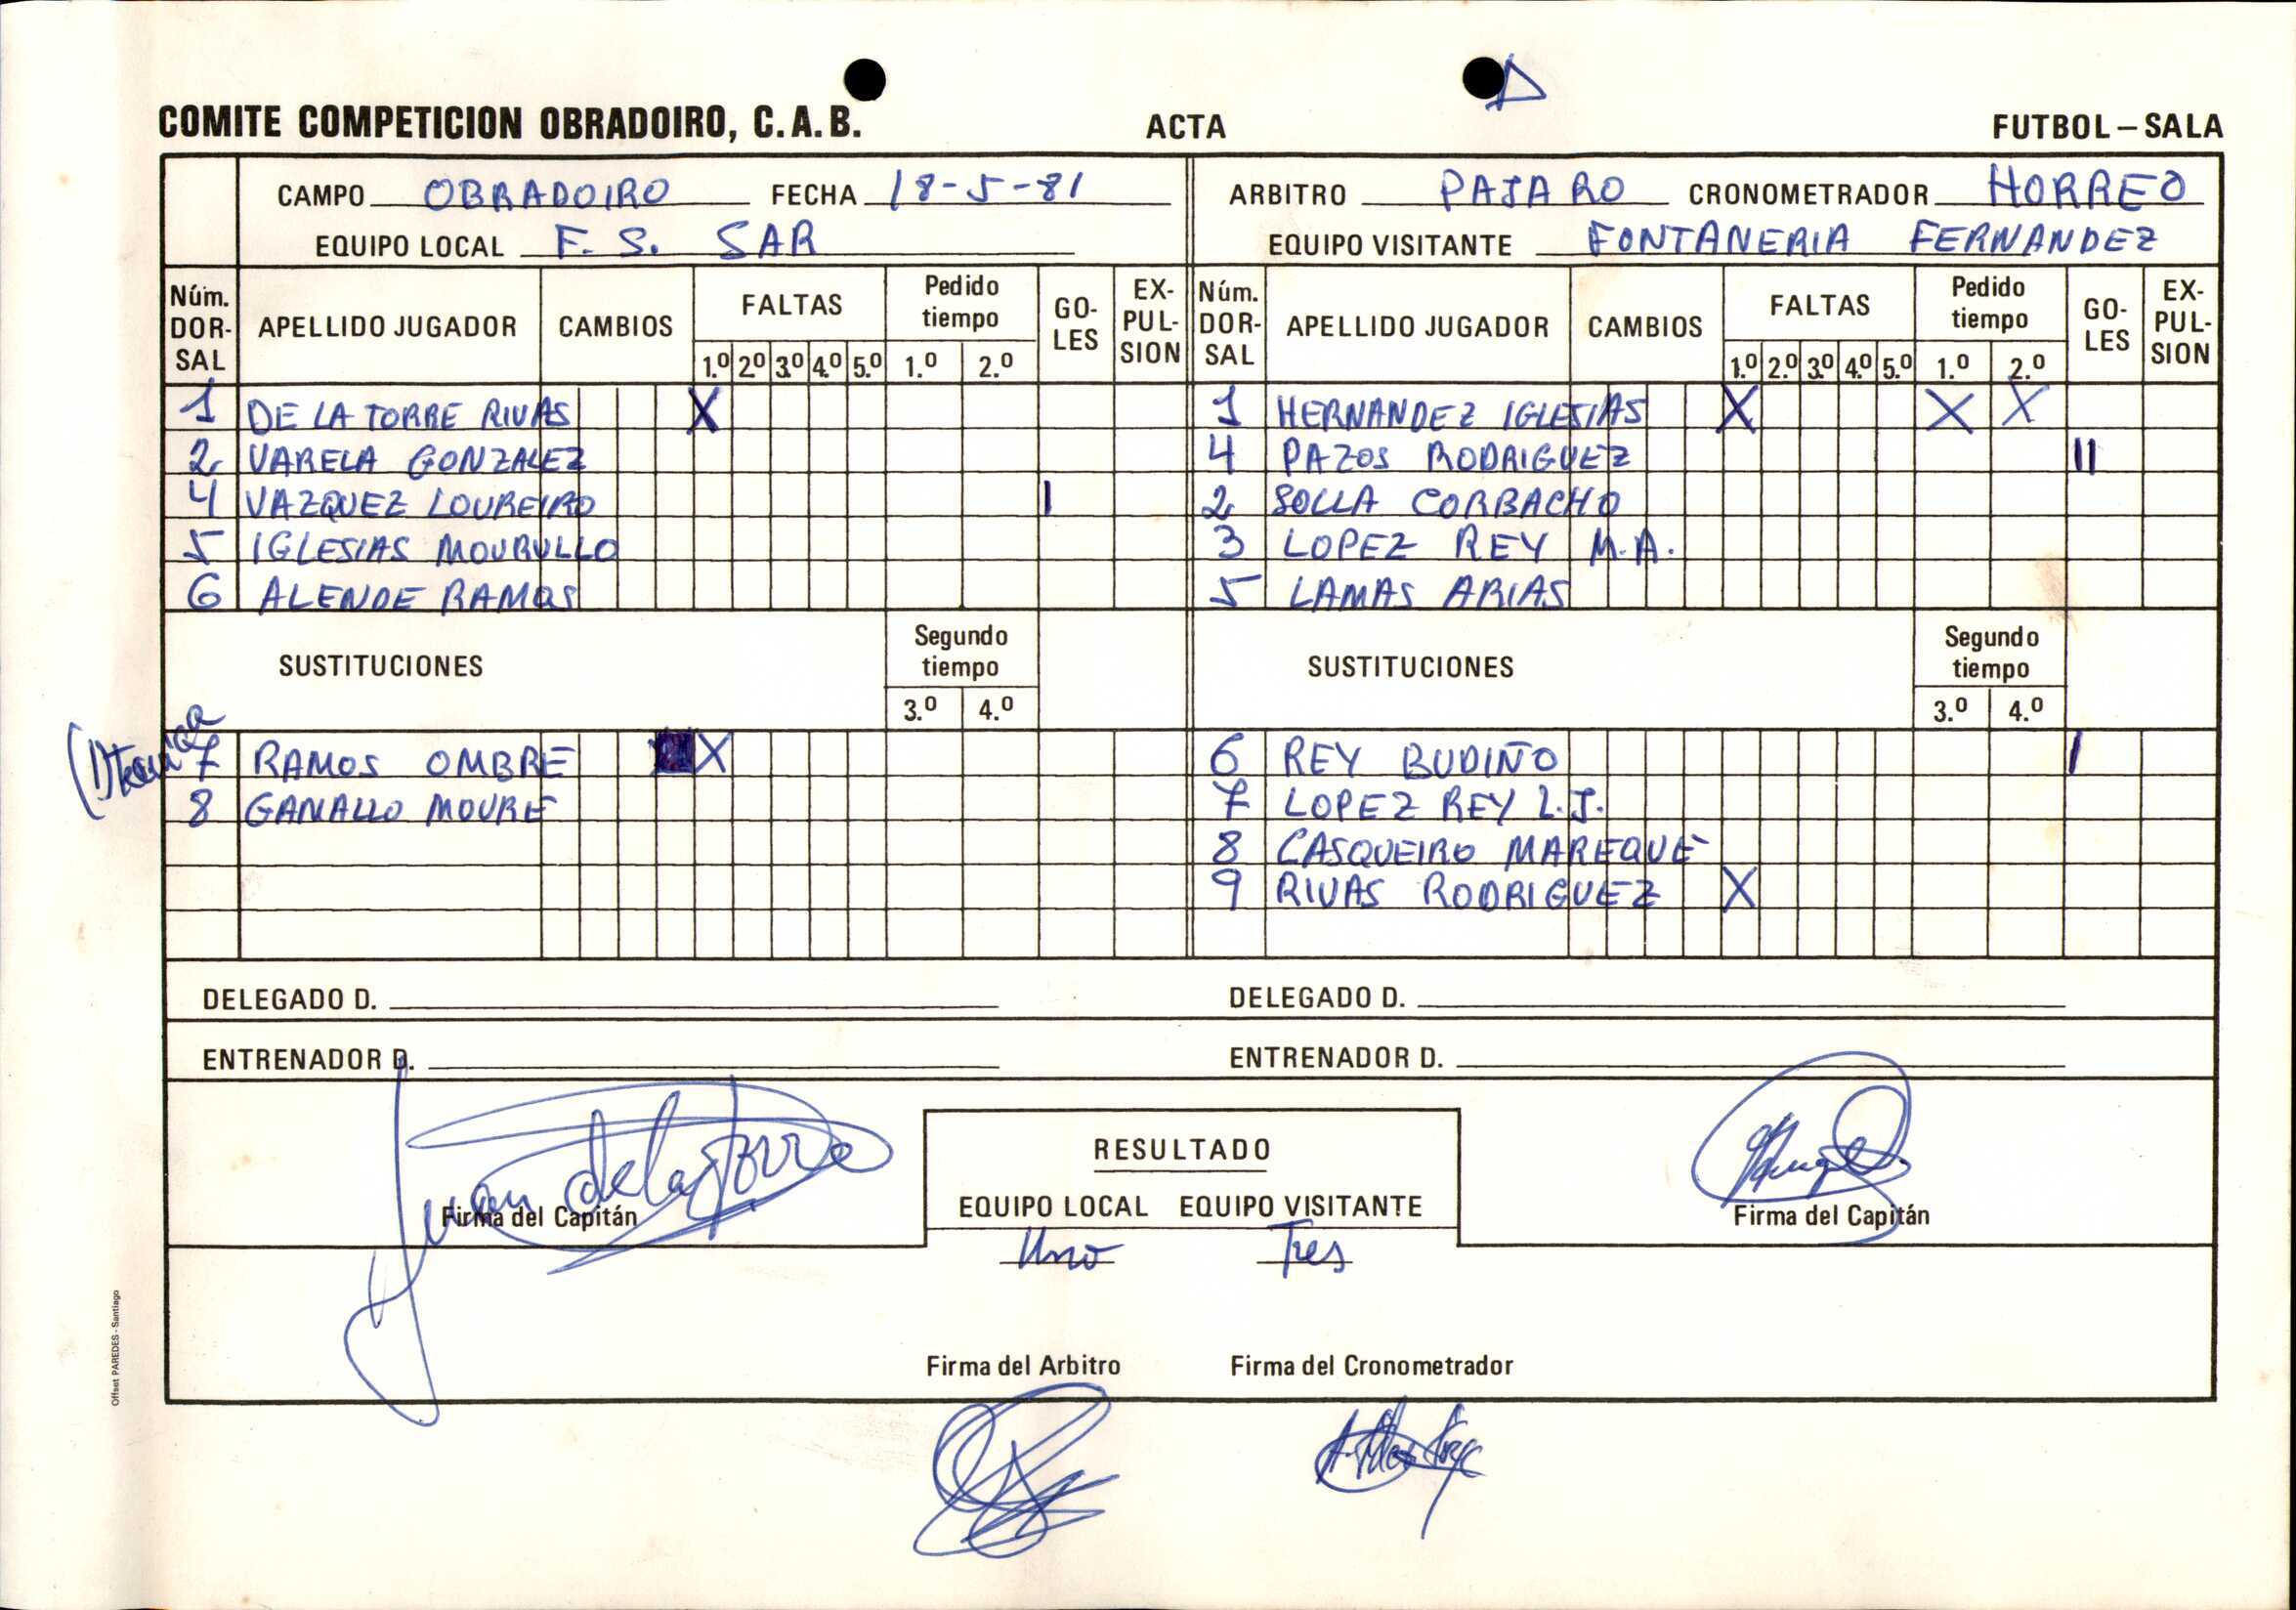 COMITE COMPETICION OBRADOIRO, C.A.B. ACTA FUTBOL-SALA
CAMPO OBRADOIRO FECHA 18-5-81 ARBITRO PAJARO CRONOMETRADOR HORREO
EQUIPO LOCAL F. S. SAR EQUIPO VISITANTE FONTANERIA FERNANDEZ
Núm. DOR-SAL APELLIDO JUGADOR CAMBIOS FALTAS 1.º 2º 3.º 4.º 5.º Pedido tiempo 1.º 2.º GO-LES EX-PUL-SION Núm. DOR-SAL APELLIDO JUGADOR CAMBIOS FALTAS 1.º 2.º 3.º 4.º 5.º Pedido tiempo 1.º 2.º GO-LES EX-PUL-SION
1 DE LA TORRE RIVAS X 1 HERNANDEZ IGLESIAS X X X
2 VARELA GONZALEZ 4 PAZOS RODRIGUEZ II
4 VAZQUEZ LOUREIRO I 2 SOLLA CORBACHO
5 IGLESIAS MOURULLO 3 LOPEZ REY M.A.
6 ALENDE RAMOS 5 LAMAS ARIAS
SUSTITUCIONES Segundo tiempo 3.º 4.º SUSTITUCIONES Segundo tiempo 3.º 4.º
7 RAMOS OMBRE X 6 REY BUDIÑO I
8 GAMALLO MOURE 7 LOPEZ REY L.J.
8 CASQUEIRO MAREQUE
9 RIVAS RODRIGUEZ X
DELEGADO D. DELEGADO D.
ENTRENADOR D. ENTRENADOR D.
RESULTADO
EQUIPO LOCAL EQUIPO VISITANTE
Juan de la Torre
Firma del Capitán Firma del Capitán
Uno Tres
Firma del Arbitro Firma del Cronometrador
Offset PAREDES - Santiago